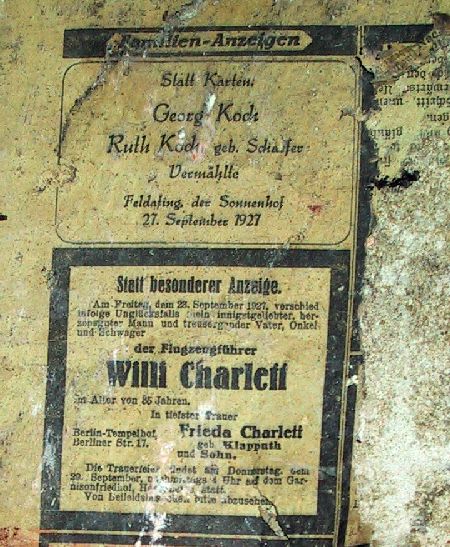 Familien-Anzeigen
Statt Karten.
Georg Koch
Ruth Koch geb. Schäffer
Vermählte
Feldafing, der Sonnenhof
27. September 1927
Statt besonderer Anzeige.
Am Freitag, dem 23. September 1927, verschied
infolge Unglücksfalls mein innigstgeliebter, her-
zensguter Mann und treusorgender Vater, Onkel
und Schwager
der Flugzeugführer
Willi Charlett
im Alter von 35 Jahren.
In tiefster Trauer
Berlin-Tempelhof, Frieda Charlett
Berliner Str. 17. geb. Klapputh
und Sohn.
Die Trauerfeier findet am Donnerstag, dem
29. September, nachmittags 4 Uhr auf dem Gar-
nisonfriedhof, statt.
Von bitte abzusehen